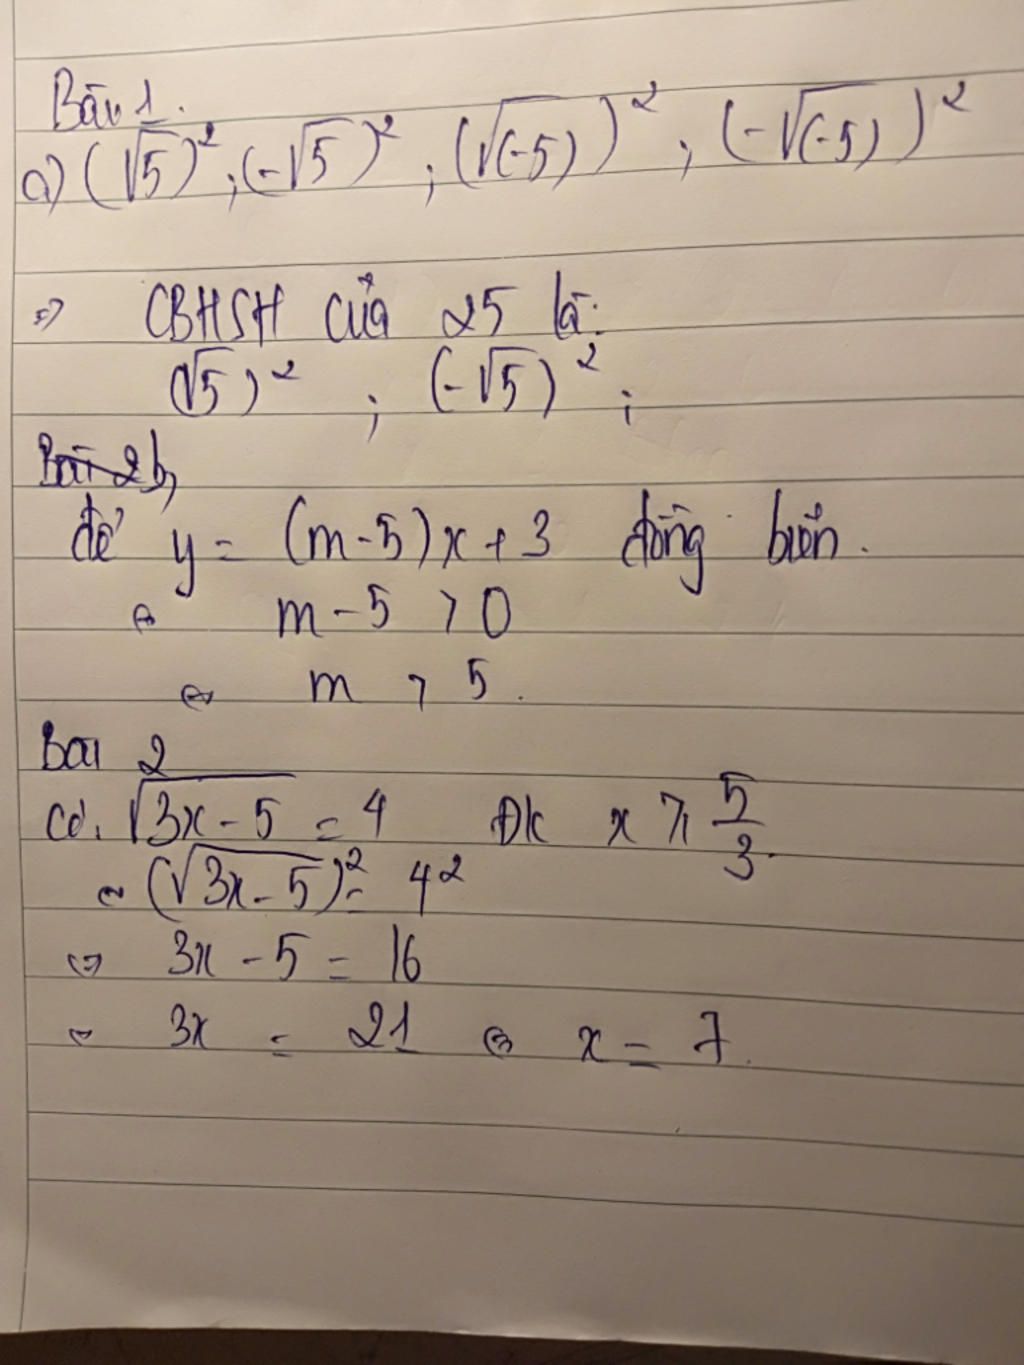 Bài 1.
a) (√5)² ; (-√5)² ; (√(-5))² ; (-√(-5))²
=> CBHSH của 25 là:
(√5)² ; (-√5)² ;
b,
để y = (m-5)x + 3 đồng biến.
⇔ m - 5 > 0
⇔ m > 5.
Bài 2
Có: √(3x-5) = 4 ĐK x ≥ 5/3.
⇔ (√(3x-5))² = 4²
⇔ 3x - 5 = 16
⇔ 3x = 21 ⇔ x = 7.